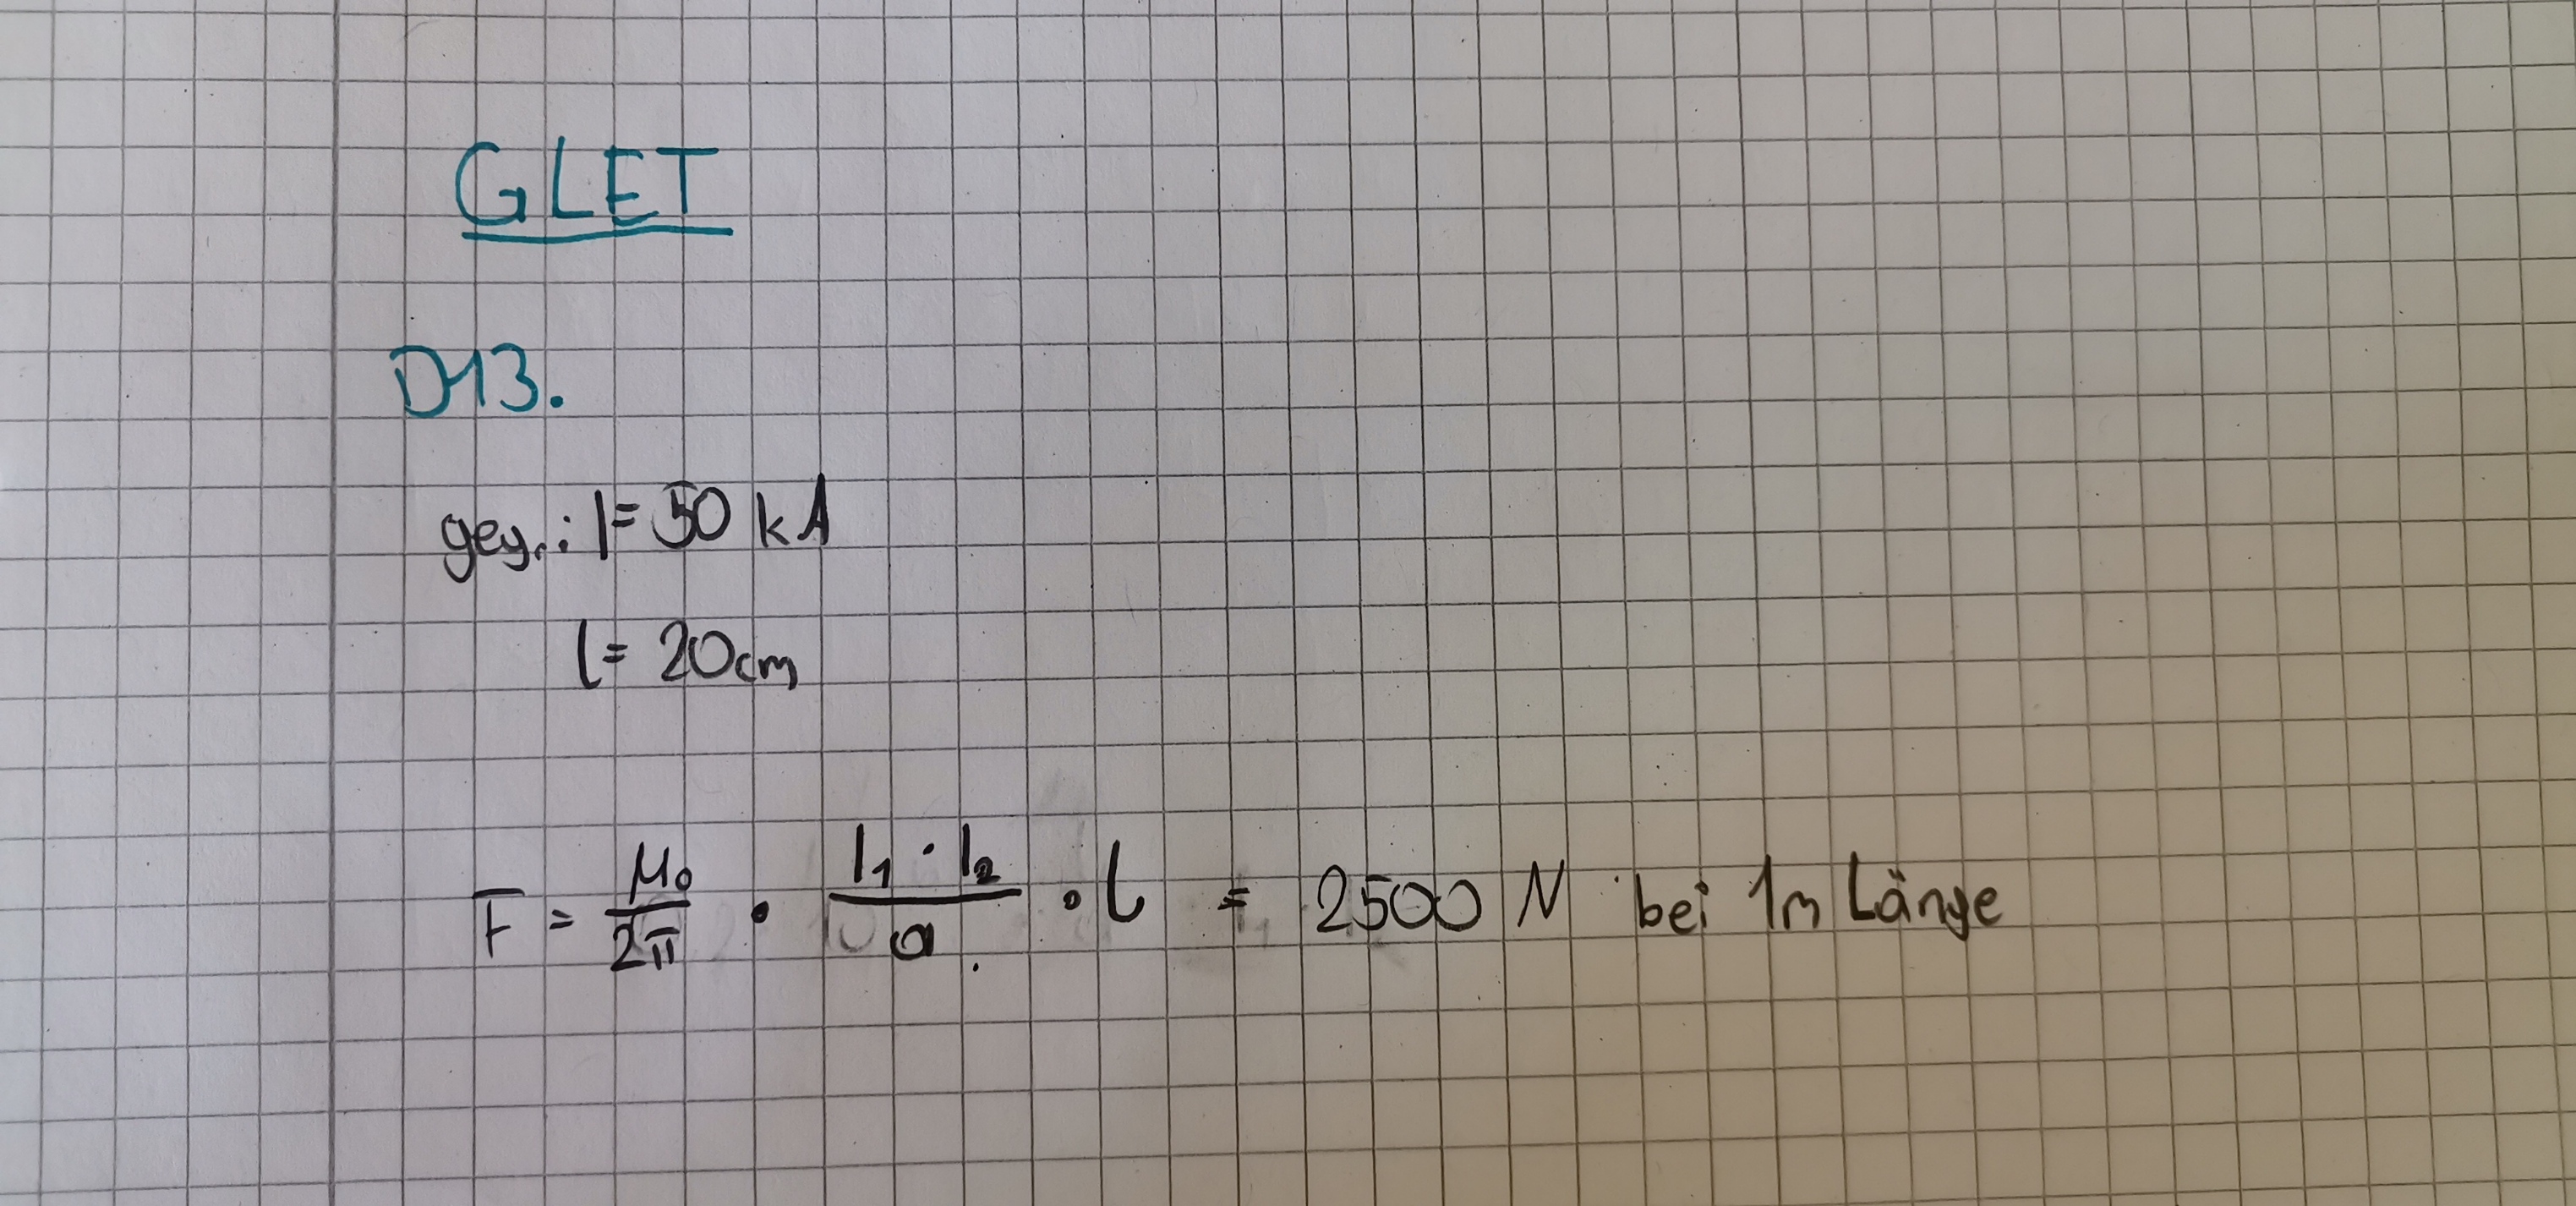 GLET
D13.
geg.: I = 50 kA
l = 20cm
F = μ₀/2π · I₁ · I₂/a · l = 2500 N bei 1m Länge